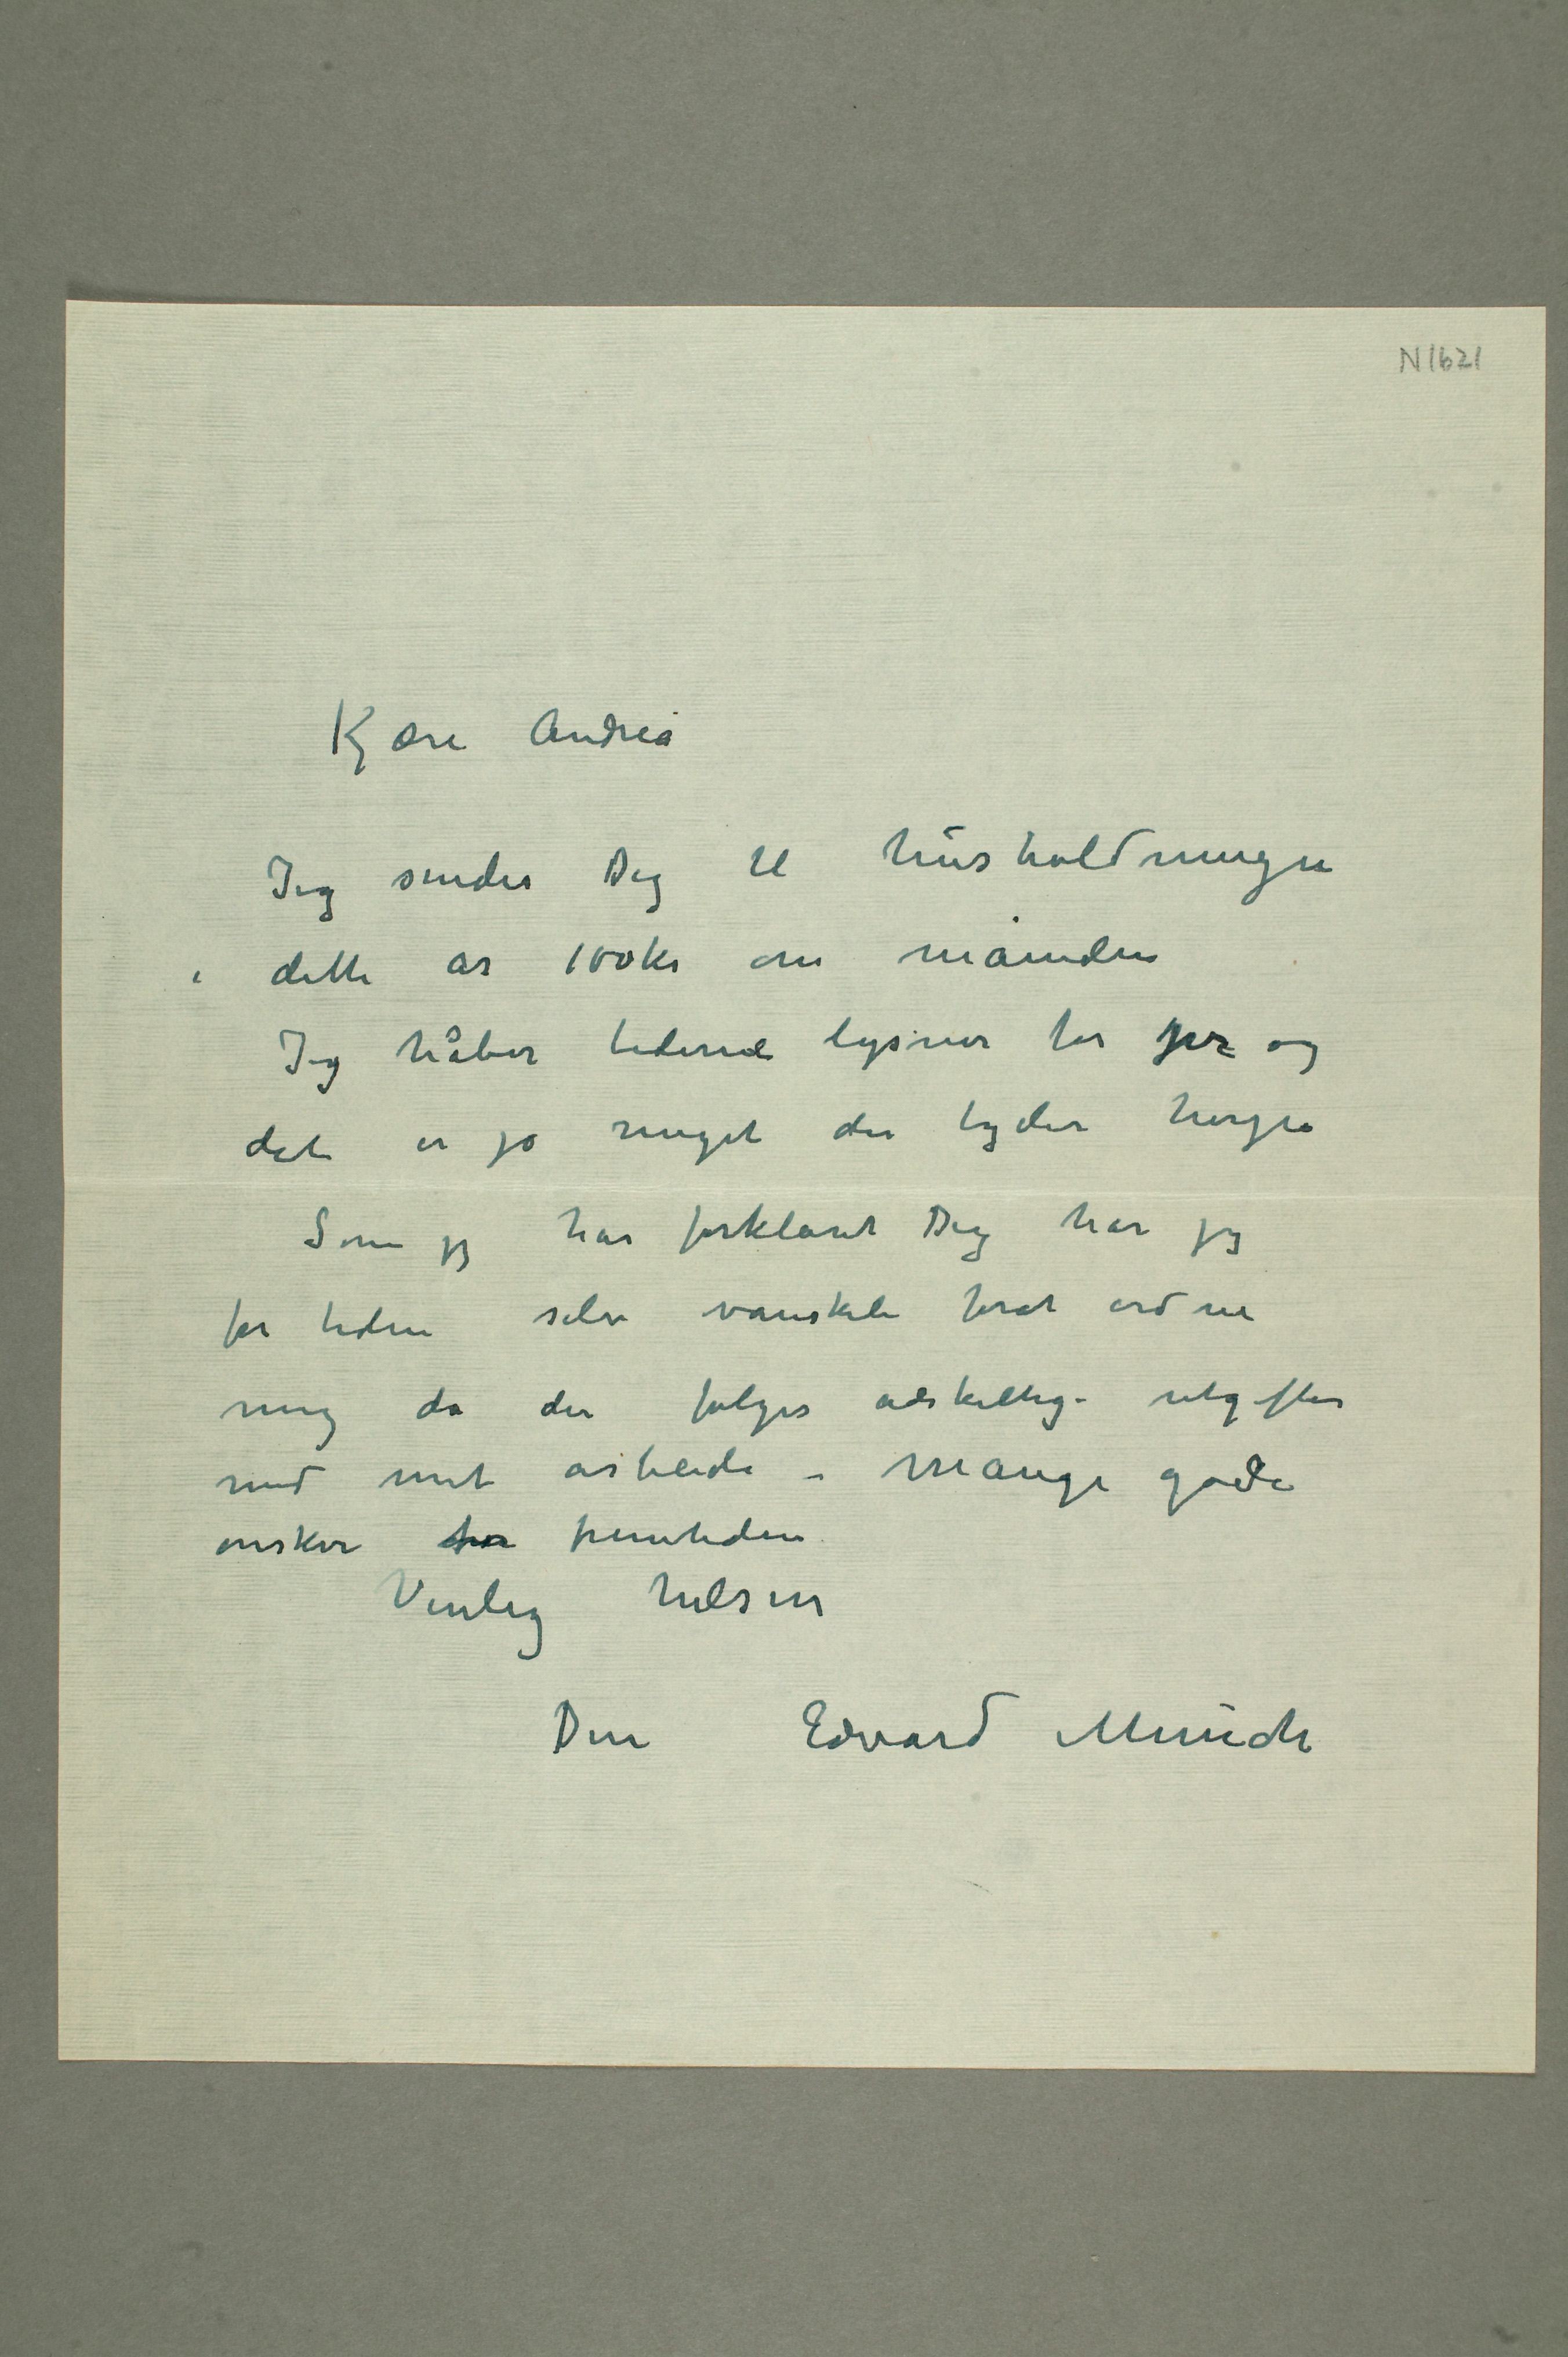 N 1621
Kjære Andrea
Jeg sender Dig til husholdningen
i dette år 100 kr om måneden
Jeg håber tiderne lysner for jer og
det er jo meget der tyder herpå
Som jeg har forklaret Dig har jeg
for tiden selv vanskeli forat ordne
mig da der følges adskellige utgifter
med mit arbeide – Mange gode
ønsker for fremtiden
Venlig hilsen
Din Edvard Munch